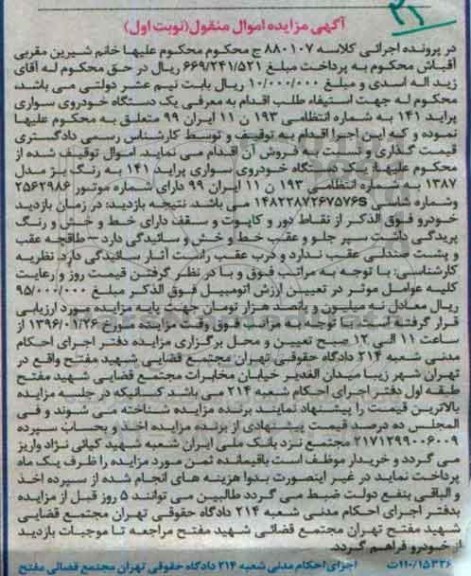 آگهی مزایده اموال منقول(نوبت اول)
در پرونده اجرائی کلاسه ۸۸۰۱۰۷ ج محکوم محکوم علیها خانم شیرین مقربی
آقباش محکوم به پرداخت مبلغ ۶۶۹/۲۴۱/۵۲۱ ریال در حق محکوم له آقای
زید اله اسدی و مبلغ ۱۰/۰۰۰/۰۰۰ ریال بابت نیم عشر دولتی می باشد،
محکوم له جهت استیفاء طلب اقدام به معرفی یک دستگاه خودروی سواری
پراید ۱۴۱ به شماره انتظامی ۱۹۳ ن ۱۱ ایران ۹۹ متعلق به محکوم علیها
نموده و که این اجرا اقدام به توقیف و توسط کارشناس رسمی دادگستری
قیمت گذاری و نسبت به فروش آن اقدام می نماید. اموال توقیف شده از
محکوم علیها یک دستگاه خودروی سواری پراید ۱۴۱ به رنگ بژ مدل
۱۳۸۷ به شماره انتظامی ۱۹۳ ن ۱۱ ایران ۹۹ دارای شماره موتور ۲۵۶۲۹۸۶
وشماره شاسی ۱۴۸۲۲۸۷۲۶۷۵۷۶S می باشد. نتیجه بازدید: در زمان بازدید
خودرو فوق الذکر از نقاط دور و کاپوت و سقف دارای خط و خش و رنگ
پریدگی داشت سپر جلو و عقب خط و خش و سائیدگی دارد – طاقچه عقب
و پشت صندلی عقب ندارد و درب عقب راست آثار سائیدگی دارد. نظریه
کارشناسی: با توجه به مراتب فوق و با در نظر گرفتن قیمت روز و رعایت
کلیه عوامل موثر در تعیین ارزش اتومبیل فوق الذکر مبلغ ۹۵/۰۰۰/۰۰۰
ریال معادل نه میلیون و پانصد هزار تومان جهت پایه مزایده مورد ارزیابی
قرار گرفته است. با توجه به مراتب فوق وقت مزایده مورخ ۱۳۹۶/۰۱/۲۶ از
ساعت ۱۱ الی ۱۲ صبح تعیین و محل برگزاری مزایده دفتر اجرای احکام
مدنی شعبه ۲۱۴ دادگاه حقوقی تهران مجتمع قضایی شهید مفتح واقع در
تهران شهر زیبا میدان الغدیر خیابان مخابرات مجتمع قضایی شهید مفتح
طبقه اول دفتر اجرای احکام شعبه ۲۱۴ می باشد کسانیکه در جلسه مزایده
بالاترین قیمت را پیشنهاد نمایند برنده مزایده شناخته می شوند و فی
المجلس ده درصد قیمت پیشنهادی از برنده مزایده اخذ و بحساب سپرده
۲۱۷۱۲۹۹۰۰۶۰۰۹ مجتمع نزد بانک ملی ایران شعبه شهید کیانی نژاد واریز
می گردد و خریدار موظف است باقیمانده ثمن مورد مزایده را ظرف یک ماه
پرداخت نماید در غیر اینصورت بدوا هزینه های انجام شده از سپرده اخذ
و الباقی بنفع دولت ضبط می گردد طالبین می توانند ۵ روز قبل از مزایده
بدفتر اجرای احکام مدنی شعبه ۲۱۴ دادگاه حقوقی تهران مجتمع قضایی
شهید مفتح تهران مجتمع قضائی شهید مفتح مراجعه تا موجبات بازدید
از خودرو فراهم گردد.
۱۱۰/۱۵۳۲۶ت اجرای احکام مدنی شعبه ۲۱۴ دادگاه حقوقی تهران مجتمع قضائی مفتح